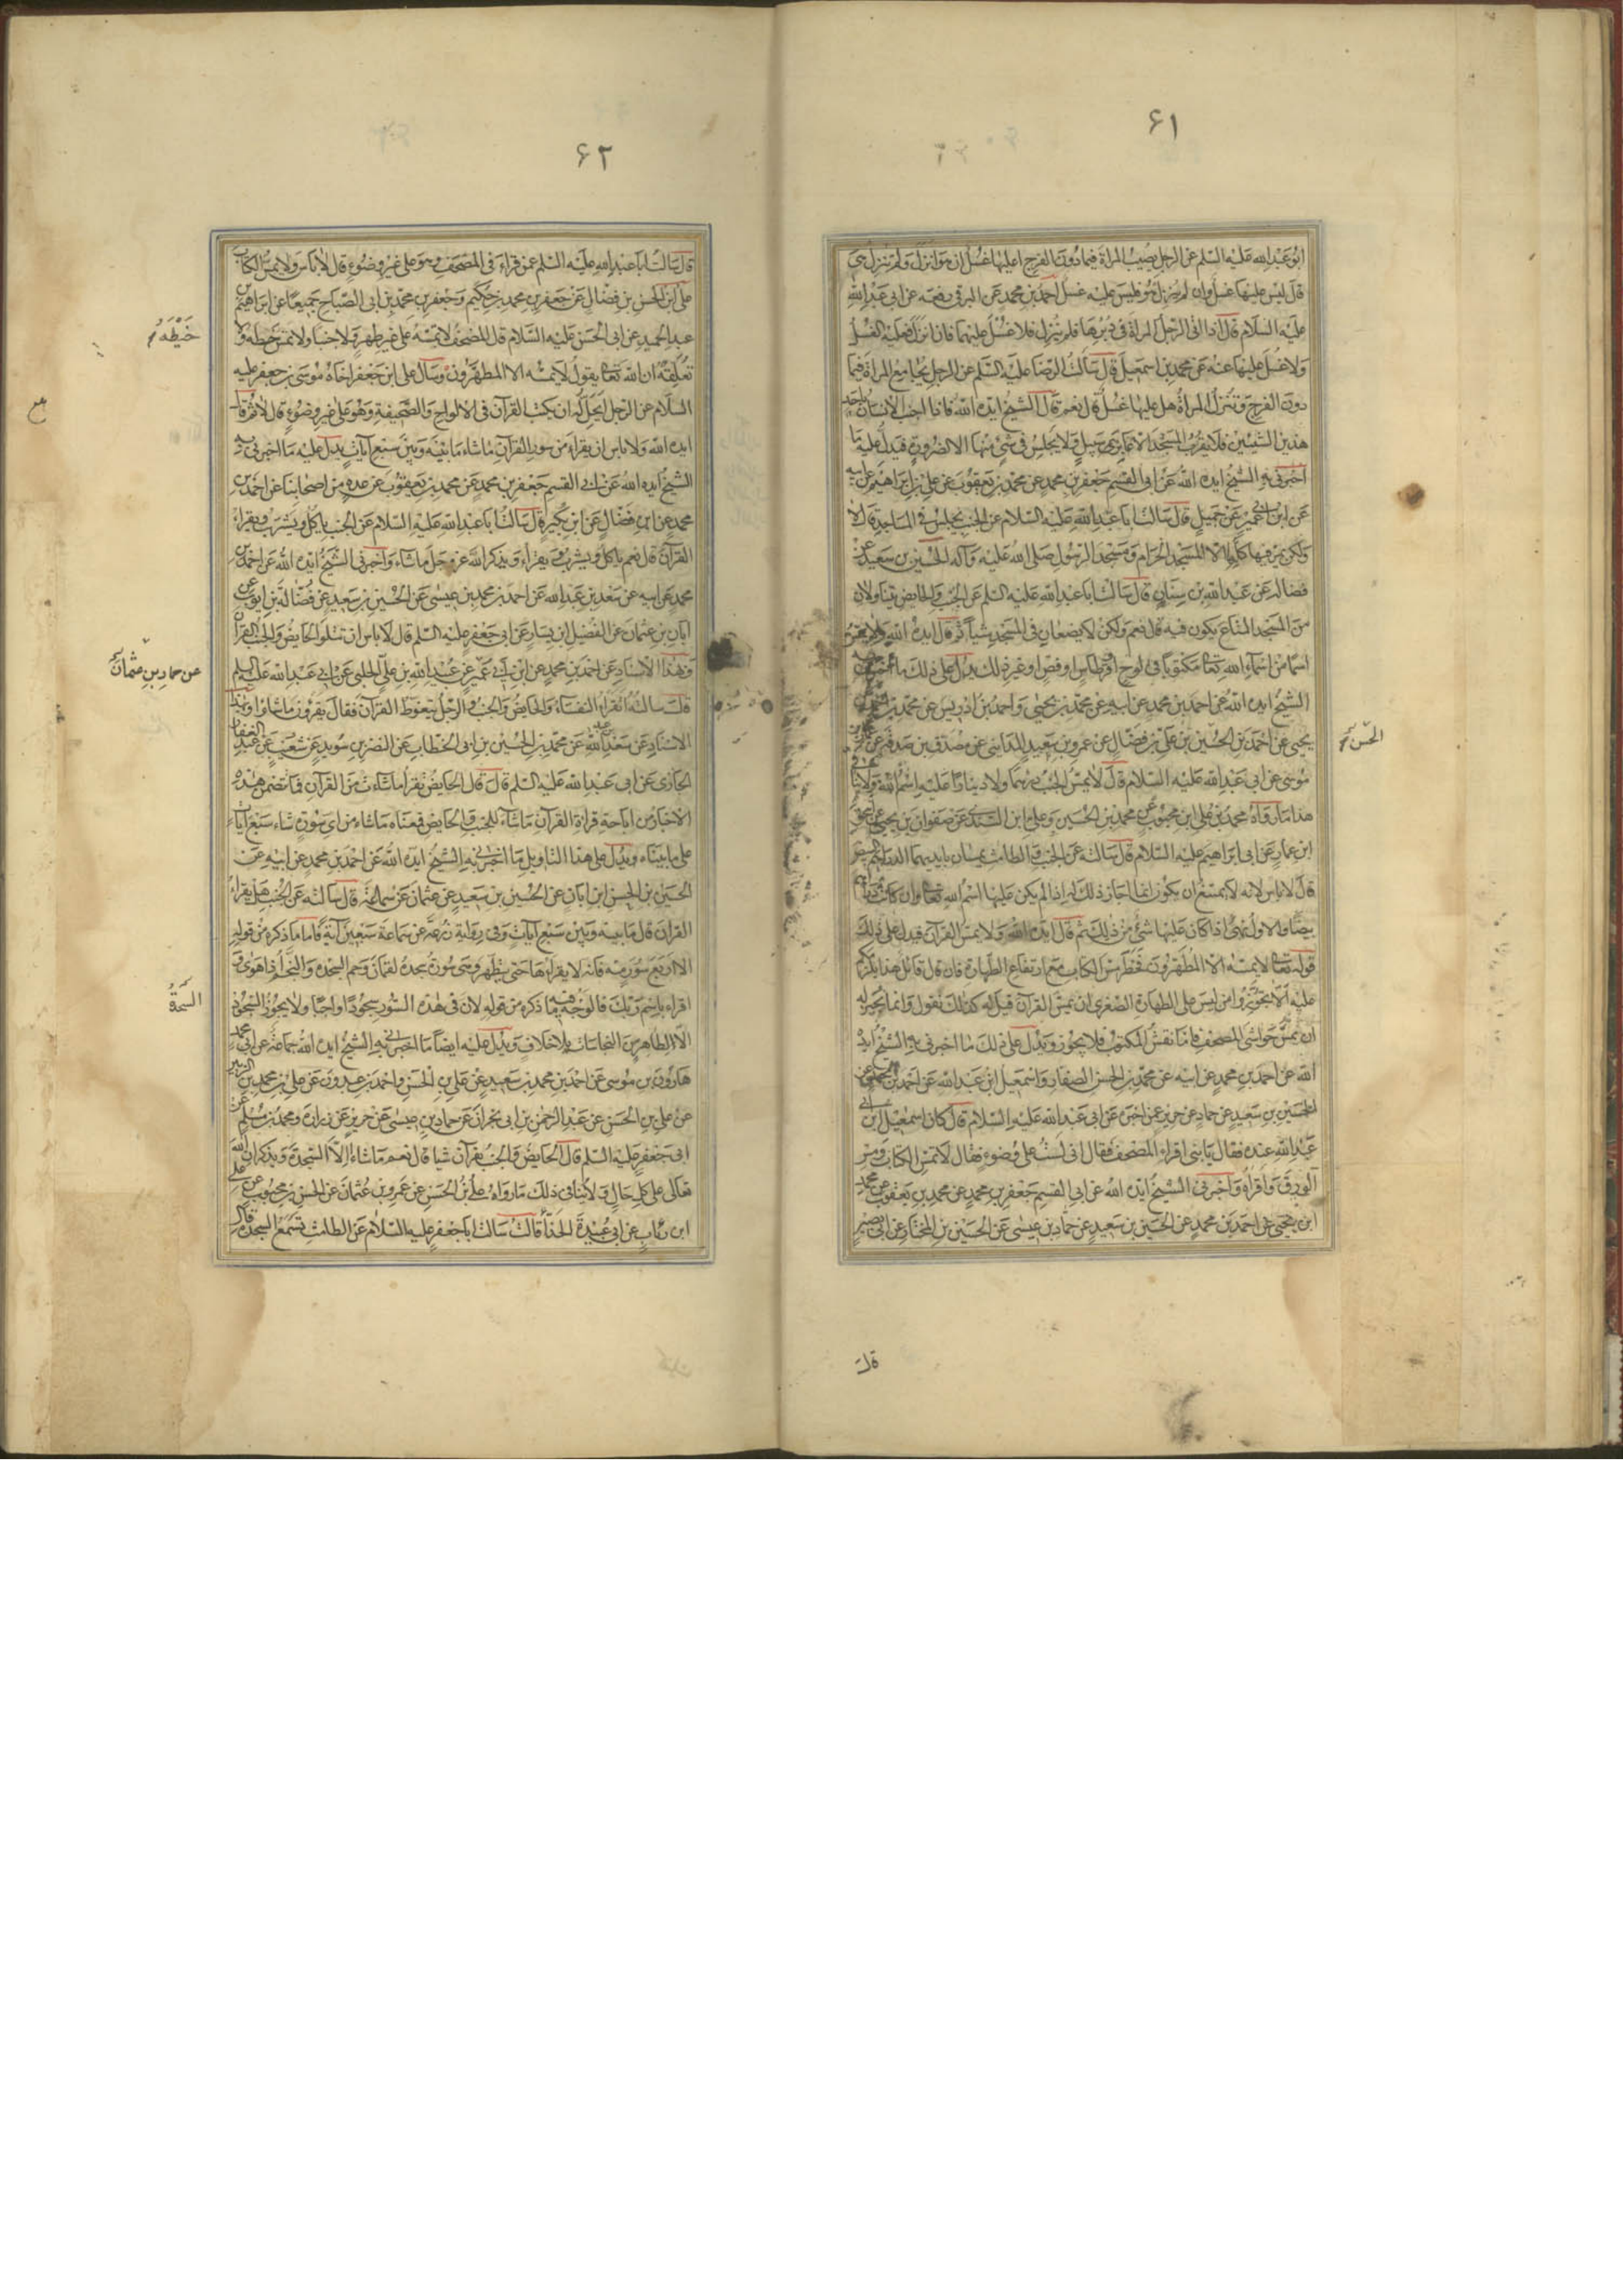 ۶۱
ابو عبد الله عليه السلم عن الرجل يصيب المراة فيما دون الفرج اعليها غسل ان هو انزل ولم تنزل هي
قال ليس عليها غسل وان لم ينزل هو فليس عليه غسل احمد بن محمد عن البرقي رفعه عن ابي عبد الله
عليه السلام قال اذا اتى الرجل المراة في دبرها فلم ينزل فلا غسل عليهما فان انزل فعليه الغسل
ولا غسل عليها عنه عن محمد بن اسمعيل قال سالت الرضا عليه السلم عن الرجل يجامع المراة فيما
دون الفرج وتنزل المراة هل عليها غسل قال نعم قال الشيخ ايده الله فاذا اجنب الانسان باحد
هذين الشيئين فلا يقرب المسجد الا عابري سبيل ولا يجلس في شئ منها الا لضرورة فيدل عليه ما
اخبرني به الشيخ ايده الله عن ابي القسم جعفر بن محمد عن محمد بن يعقوب عن علي بن ابراهيم عن ابيه
عن ابن ابي عمير عن جميل قال سالت ابا عبد الله عليه السلام عن الجنب يجلس في المساجد قال لا
ولكن يمر فيها كلها الا المسجد الحرام ومسجد الرسول صلى الله عليه وآله الحسين بن سعيد عن
فضالة عن عبد الله بن سنان قال سالت ابا عبد الله عليه السلم عن الجنب والحايض يتناولان
من المسجد المتاع يكون فيه قال نعم ولكن لا يضعان في المسجد شيأ ثم قال ايده الله ولا يمس
اسما من اسماء الله تعالى مكتوبا في لوح او قرطاس او فص او غير ذلك يدل على ذلك ما
الشيخ ايده الله عن احمد بن محمد عن ابيه عن محمد بن يحيى واحمد بن ادريس عن محمد بن احمد بن
يحيى عن احمد بن الحسين بن علي بن فضال عن عمرو بن سعيد المدايني عن مصدق بن صدقة عن عمار بن
موسى عن ابي عبد الله عليه السلام قال لا يمس الجنب درهما ولا دينارا عليه اسم الله ولا ينافي
هذا ما رواه محمد بن علي بن محبوب عن محمد بن الحسين وعلي ابن السندي عن صفوان بن يحيى عن اسحق
ابن عمار عن ابي ابراهيم عليه السلام قال سالته عن الجنب والطامث يمسان بايديهما الدراهم البيض
قال لا باس لانه لا يمتنع ان يكون انما اجاز ذلك له اذا لم يكن عليها اسم الله تعالى وان كانت دراهم
بيضا والاول نهى اذا كان عليها شئ من ذلك ثم قال ايده الله ولا يمس القرآن فيدل على ذلك
قوله تعالى لا يمسه الا المطهرون فحظر مس الكتاب مع ارتفاع الطهارة فان قال قائل هذا يلزمكم
عليه الا تجوزوا لمن ليس على الطهارة الصغرى ان يمس القرآن قيل له كذلك نقول وانما يجيز له
ان يمس حواشي المصحف فاما نقش المكتوب فلا يجوز ويدل على ذلك ما اخبرني به الشيخ ايده
الله عن احمد بن محمد عن ابيه عن محمد بن الحسن الصفار واسمعيل ابن عبد الله عن احمد بن محمد عن
الحسين بن سعيد عن حماد عن حريز عمن اخبره عن ابي عبد الله عليه السلام قال كان اسمعيل ابن ابي
عبد الله عنده فقال يا بني اقراء المصحف فقال اني لست على وضوء فقال لا تمس الكتاب ومس
الورق واقراه واخبرني الشيخ ايده الله عن ابي القسم جعفر بن محمد عن محمد بن يعقوب عن محمد
ابن يحيى عن احمد بن محمد عن الحسين بن سعيد عن حماد بن عيسى عن الحسين بن المختار عن ابي بصير
الحسن
قال
۶۲
قال سالت ابا عبد الله عليه السلم عمن قراء في المصحف وهو على غير وضوء قال لا باس ولا يمس الكتاب
علي ابن الحسن بن فضال عن جعفر بن محمد بن حكيم وجعفر بن محمد بن ابي الصباح جميعا عن ابراهيم بن
عبد الحميد عن ابي الحسن عليه السلام قال المصحف لا تمسه على غير طهر ولا جنبا ولا تمس خيطه ولا
تعلقه ان الله تعالى يقول لا يمسه الا المطهرون وسال علي ابن جعفر اخاه موسى بن جعفر عليه
السلام عن الرجل ايحل له ان يكتب القرآن في الالواح والصحيفة وهو على غير وضوء قال لا ثم قال
ايده الله ولا باس ان يقراء من سور القرآن ما شاء ما بينه وبين سبع آيات يدل عليه ما اخبرني به
الشيخ ايده الله عن ابي القسم جعفر بن محمد عن محمد بن يعقوب عن عدة من اصحابنا عن احمد بن
محمد عن ابن فضال عن ابن بكير قال سالت ابا عبد الله عليه السلام عن الجنب ياكل ويشرب ويقراء
القرآن قال نعم ياكل ويشرب ويقراء ويذكر الله عز وجل ما شاء واخبرني الشيخ ايده الله عن احمد بن
محمد عن ابيه عن سعد بن عبد الله عن احمد بن محمد بن عيسى عن الحسين بن سعيد عن فضالة بن ايوب عن
ابان بن عثمان عن الفضيل ابن يسار عن ابي جعفر عليه السلم قال لا باس ان تتلو الحايض والجنب القرآن
وبهذا الاسناد عن احمد بن محمد عن ابن ابي عمير عن عبيد الله بن علي الحلبي عن ابي عبد الله عليه السلم
قال سالته اتقراء النفساء والحايض والجنب والرجل يتغوط القرآن فقال يقرؤن ما شاؤا وبهذا
الاسناد عن سعد بن عبد الله عن محمد بن الحسين بن ابي الخطاب عن النضر بن سويد عن شعيب عن عبد الغفار
الجازي عن ابي عبد الله عليه السلم قال قال الحايض تقرا ما شاءت من القرآن فما تضمن هذه
الاخبار من اباحة قراءة القرآن ما شاء للجنب والحايض فمعناه ما شاء من اي سورة شاء سبع آيات
على ما بيناه ويدل على هذا التاويل ما اخبرني به الشيخ ايده الله عن احمد بن محمد عن ابيه عن
الحسين بن الحسن ابن ابان عن الحسين بن سعيد عن عثمان عن سماعة قال سالته عن الجنب هل يقراء
القرآن قال ما بينه وبين سبع آيات وفي رواية زرعة عن سماعة سبعين آية فاما ما ذكره من قوله
الا اربع سور منه فانه لا يقراها حتى يتطهر وهي سورة سجدة لقمان وحم السجدة والنجم اذا هوى و
اقراء باسم ربك فالوجه فيه ما ذكره من قوله لان في هذه السور سجودا واجبا ولا يجوز السجود
الا لطاهر من النجاسات بلا خلاف ويدل عليه ايضا ما اخبرني به الشيخ ايده الله جماعة عن ابي محمد
هارون بن موسى عن احمد بن محمد بن سعيد عن علي بن الحسن واحمد بن عبدون عن علي بن محمد بن الزبير
عن علي بن الحسن عن عبد الرحمن بن ابي نجران عن حماد بن عيسى عن حريز عن زرارة ومحمد بن مسلم عن
ابي جعفر عليه السلم قال الحايض والجنب يقرآن شيا قال نعم ما شاءا الا السجدة ويذكران الله
تعالى على كل حال ولا ينافي ذلك ما رواه علي بن الحسن عن عمرو بن عثمان عن الحسن بن محبوب عن علي
ابن رئاب عن ابي عبيدة الحذاء قال سالت ابا جعفر عليه السلام عن الطامث تسمع السجدة قال
خيطه
عن حماد بن عثمان
السجدة